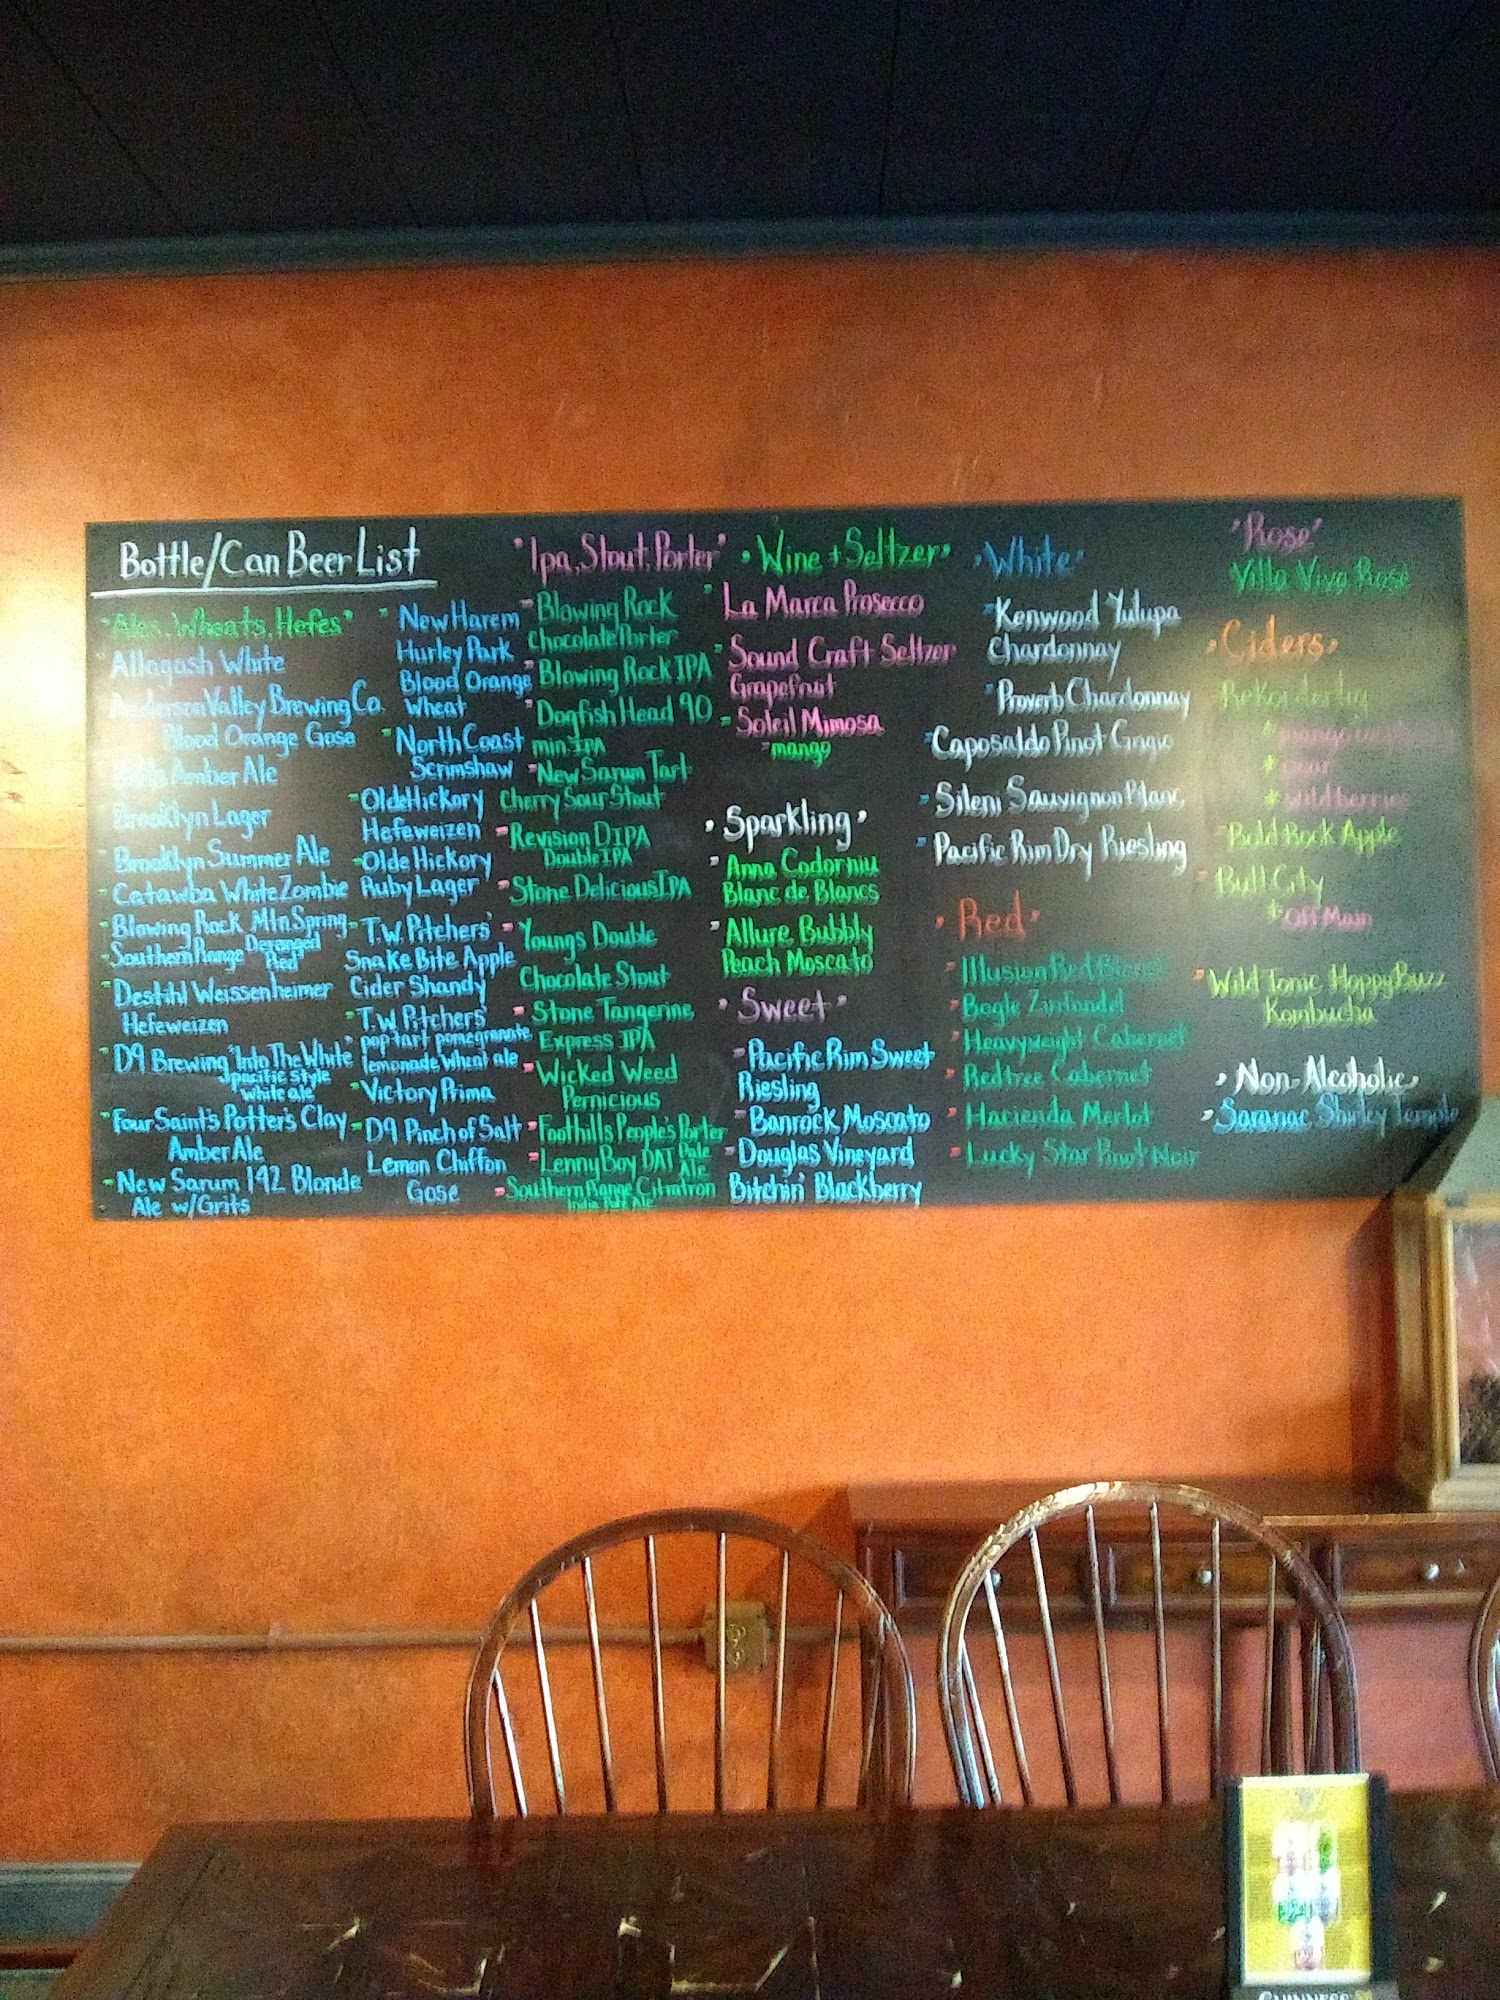 Bottle/Can Beer List
"Ales, Wheats, Hefes"
Allagash White
Anderson Valley Brewing Co.
Blood Orange Gose
Amber Ale
Brooklyn Lager
Brooklyn Summer Ale
Catawba White Zombie
Blowing Rock Mtn Spring
Southern Range Deranged
Pied
Destihl Weissenheimer
Hefeweizen
D9 Brewing "Into The White"
Spacific Style
White ale
Four Saint's Potter's Clay
Amber Ale
New Sarum 142 Blonde
Ale w/Grits
New Harem
Hurley Park
Blood Orange
Wheat
North Coast
Scrimshaw
Olde Hickory
Hefeweizen
Olde Hickory
Ruby Lager
T.W. Pitchers'
Snake Bite Apple
Cider Shandy
T.W. Pitchers'
pop tart pomegranate
lemonade Wheat ale
Victory Prima
D9 Pinch of Salt
Lemon Chiffon
Gose
"Ipa, Stout, Porter"
Blowing Rock
Chocolate Porter
Blowing Rock IPA
Dogfish Head 90
min IPA
New Sarum Tart
Cherry Sour Stout
Revision DIPA
Double IPA
Stone Delicious IPA
Youngs Double
Chocolate Stout
Stone Tangerine
Express IPA
Wicked Weed
Pernicious
Foothills People's Porter
Lenny Boy DAT Pale
Ale
Southern Range Citratron
India Pale Ale
• Wine + Seltzer •
La Marca Prosecco
Sound Craft Seltzer
Grapefruit
Soleil Mimosa
mango
• Sparkling •
Anna Codorniu
Blanc de Blancs
Allure Bubbly
Peach Moscato
• Sweet •
Pacific Rim Sweet
Riesling
Banrock Moscato
Douglas Vineyard
Bitchin' Blackberry
• White •
Kenwood Yulupa
Chardonnay
Proverb Chardonnay
Caposaldo Pinot Grigio
Sileni Sauvignon Blanc
Pacific Rim Dry Riesling
• Red •
Illusion Red
Bogle Zinfandel
Heavyweight Cabernet
Redtree Cabernet
Hacienda Merlot
Lucky Star Pinot Noir
"Rose"
Villa Viva Rose
• Ciders •
Rekorderlig
* pear
* wildberries
Bold Rock Apple
Bull City
* Off Main
Wild Tonic Hoppy Buzz
Kombucha
• Non-Alcoholic •
Saranac Shirley Temple
GUINNESS